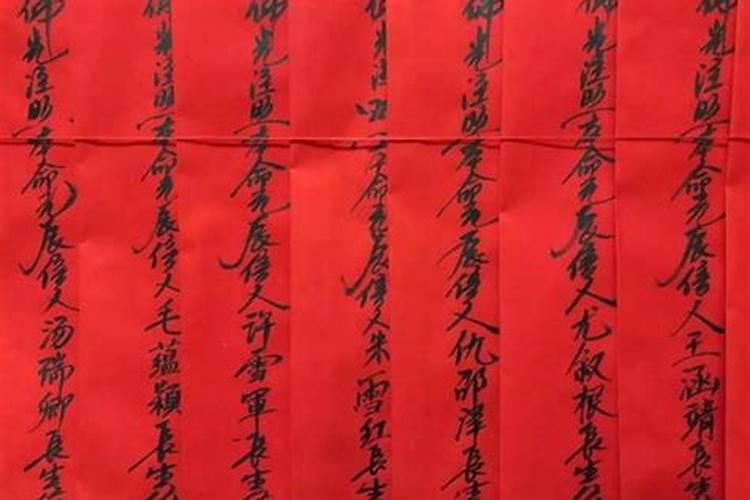 佛光注照本命元辰信人王涵靖長生
佛光注照本命元辰信人尤叙根長生
佛光注照本命元辰信人仇邵洋長生
佛光注照本命元辰信人朱雪红長生
佛光注照本命元辰信人许雪軍長生
佛光注照本命元辰信人毛蕴颖長生
佛光注照本命元辰信人汤瑞卿長生